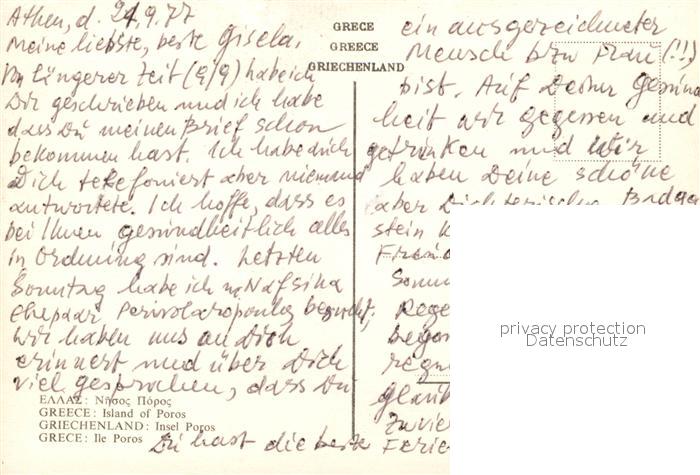 Athen, d. 21.9.77
Meine liebste, beste Gisela.
Vor längerer Zeit (9/9) habe ich
Dir geschrieben und ich habe
dass Du meinen Brief schon
bekommen hast. Ich habe auch
Dich telefoniert aber niemand
antwortete. Ich hoffe, dass es
bei Ihnen gesundheitlich alles
in Ordnung sind. Letzten
Sonntag habe ich Nafsina
Ehepaar besucht,
wir haben uns an Dich
erinnert und über Dich
viel gesprochen, dass Du
ΕΛΛΑΣ: Νήσος Πόρος
GREECE: Island of Poros
GRIECHENLAND: Insel Poros
GRECE: Ile Poros
Du hast die beste
GRECE
GREECE
GRIECHENLAND
ein ausgezeichneter
Mensch bzw Frau (!!)
bist. Auf Deiner Gesund
heit wir gegessen und
getrunken und wir
haben Deine schöne
aber Badga
stein
Somm
Rege
begon
regn
glaub
zuvie
Ferie
privacy protection
Datenschutz